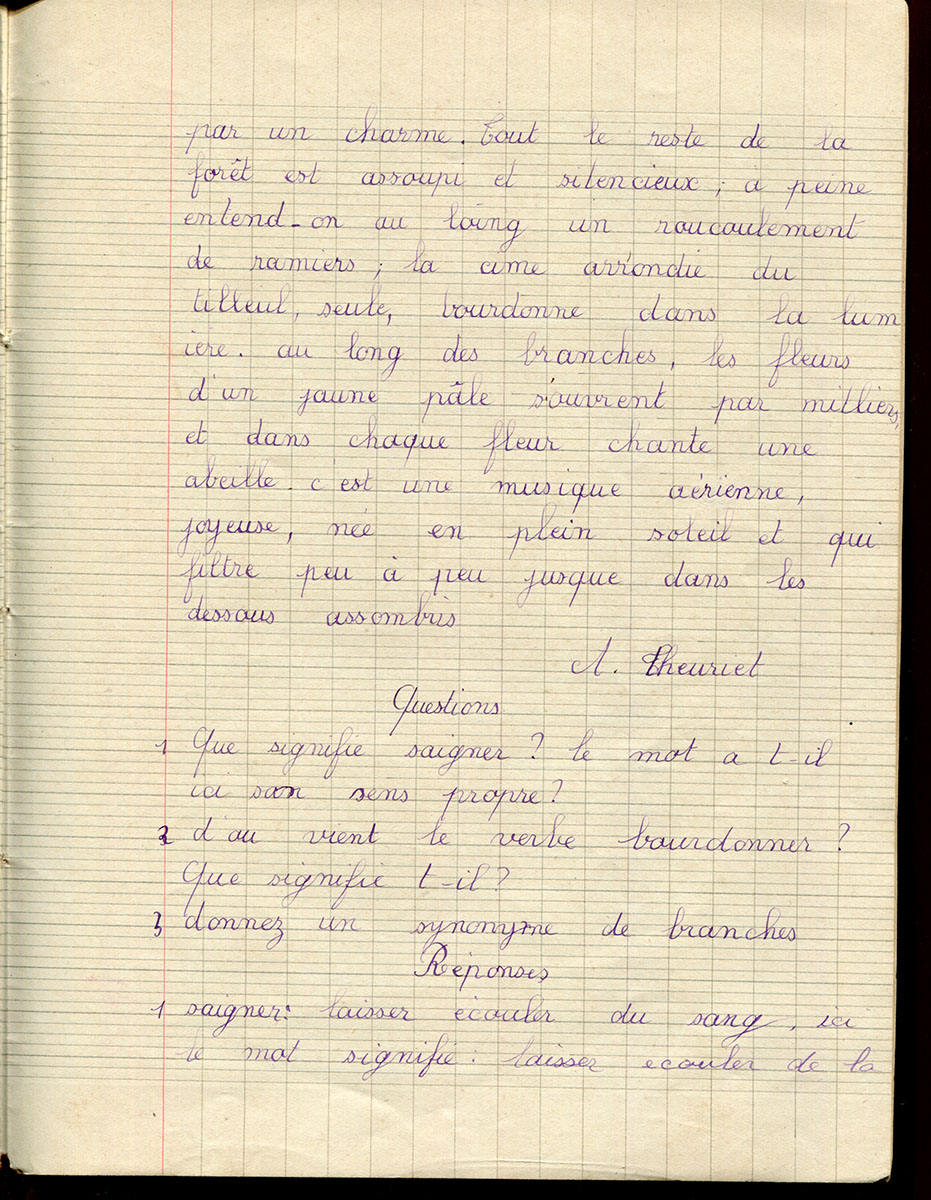 par un charme. Tout le reste de la
forêt est assoupi et silencieux ; a peine
entend-on au loing un roucoulement
de ramiers ; la cime arrondie du
tilleul, seule, bourdonne dans la lum
ière. au long des branches, les fleurs
d'un jaune pâle s'ouvrent par milliers,
et dans chaque fleur chante une
abeille. c'est une musique aérienne,
joyeuse, née en plein soleil et qui
filtre peu à peu jusque dans les
dessous assombris
A. Theuriet
Questions
1 Que signifie saigner ? le mot a t-il
ici son sens propre ?
2 d'au vient le verbe bourdonner ?
Que signifie t-il ?
3 donnez un synonyme de branches
Réponses
1 saigner : laisser écouler du sang, ici
le mot signifie : laisser ecouler de la